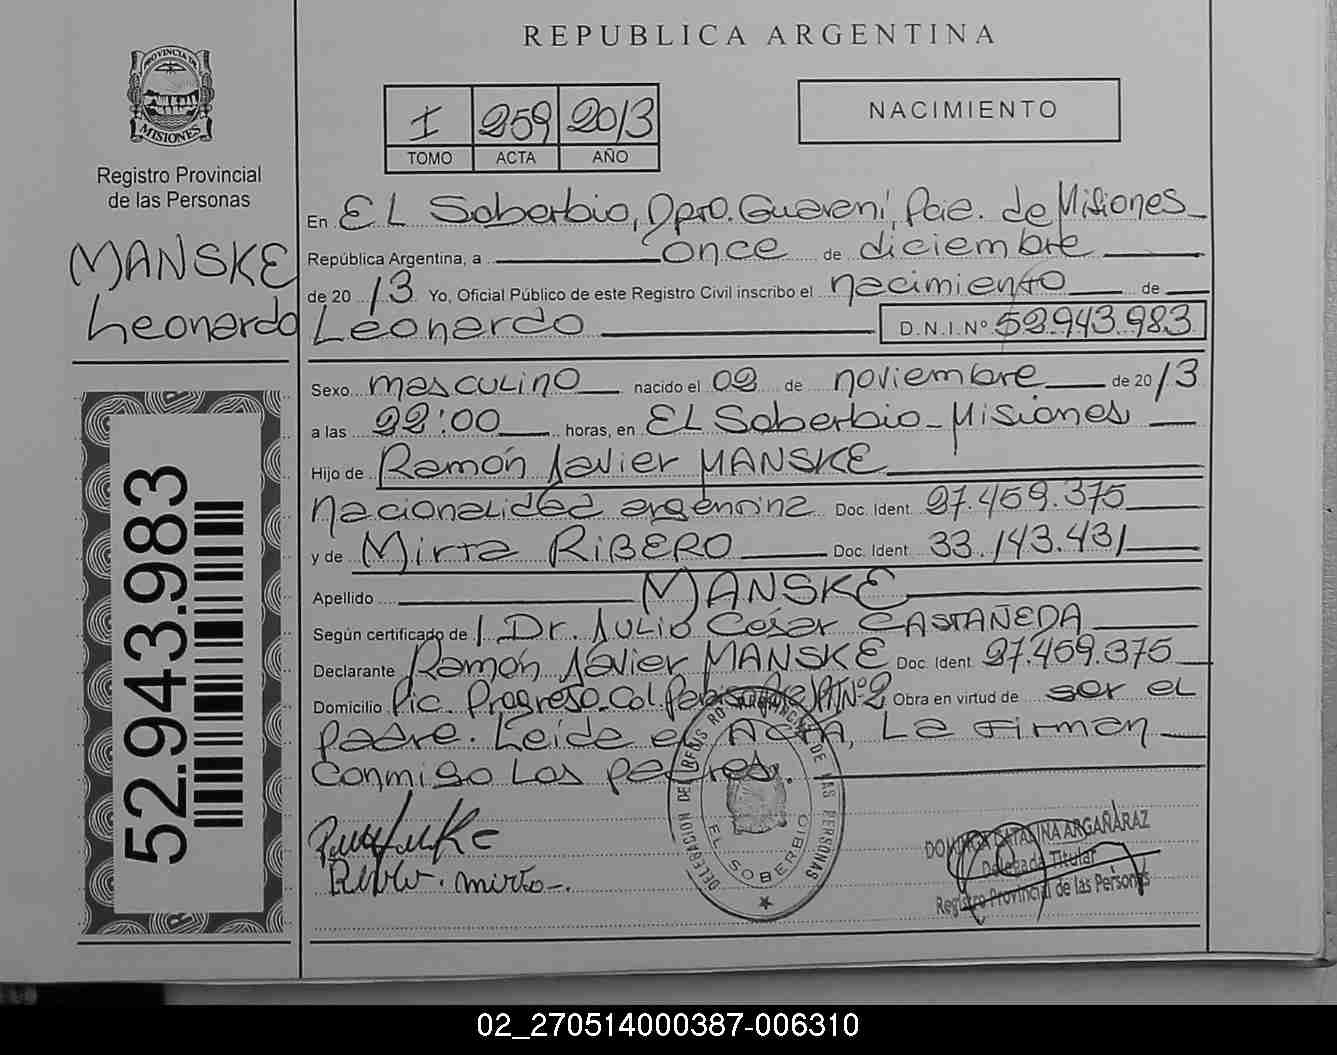 REPUBLICA ARGENTINA
PROVINCIA DE
MISIONES
Registro Provincial
de las Personas
MANSKE
Leonardo
52.943.983
I 259 2013
TOMO ACTA AÑO
NACIMIENTO
En EL Soberbio, Dpto. Guaraní, Pcia. de Misiones
República Argentina, a once de diciembre
de 2013 Yo, Oficial Público de este Registro Civil inscribo el nacimiento de
Leonardo D.N.I.Nº 52.943.983
Sexo masculino nacido el 02 de noviembre de 2013
a las 22:00 horas, en EL Soberbio - Misiones
Hijo de Ramón Javier MANSKE
nacionalidad argentina Doc. Ident. 27.459.375
y de Mirta RIBERO Doc. Ident. 33.143.431
Apellido MANSKE
Según certificado de Dr. Julio César CASTAÑEDA
Declarante Ramón Javier MANSKE Doc. Ident. 27.459.375
Domicilio Pic. Progreso - Col. Nº2 Obra en virtud de ser el
padre. Leída el Acta, La Firman
Conmigo Los padres.
DELEGACION DE LAS PERSONAS
EL SOBERBIO
CATALINA ARGAÑARAZ
Delegada Titular
Registro Provincial de las Personas
02_270514000387-006310